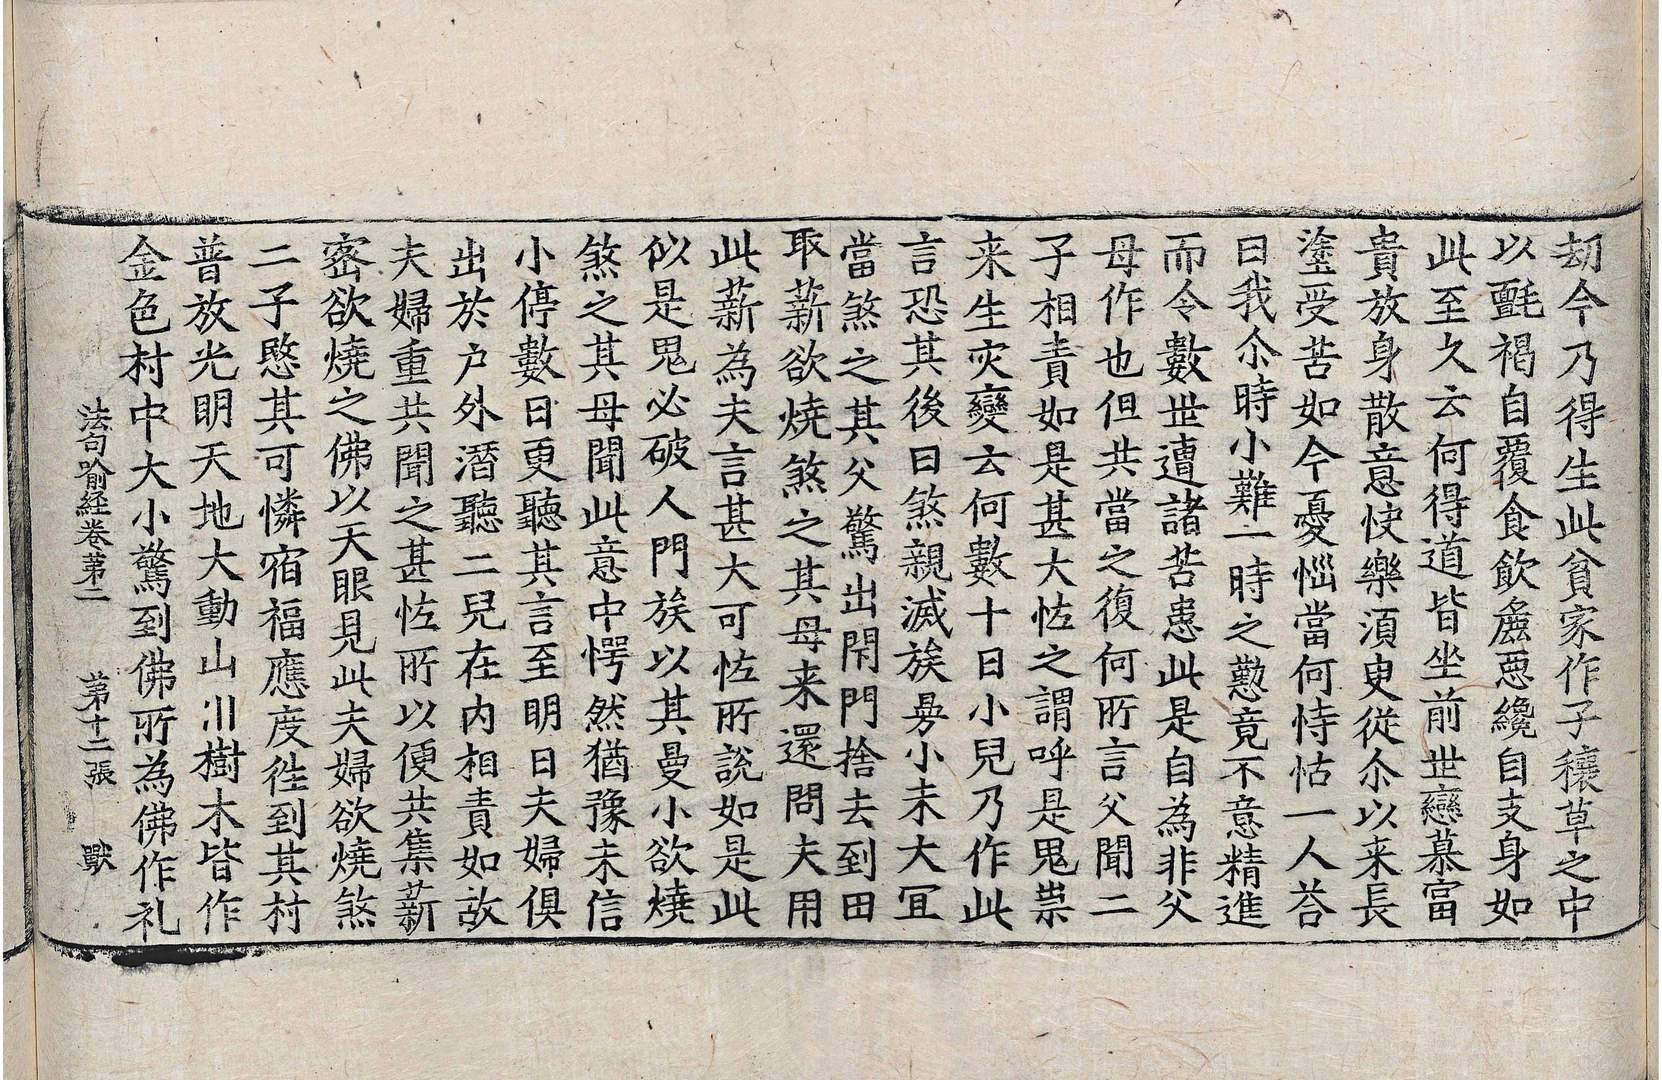 劫今乃得生此貧家作子穰草之中
以㲲褐自覆食飲麁惡纔自支身如
此至久云何得道皆坐前世戀慕富
貴放身散意快樂須臾從尒以来長
塗受苦如今憂惱當何恃怙一人荅
曰我尒時小難一時之懃竟不意精進
而令數世遭諸苦患此是自為非父
母作也但共當之復何所言父聞二
子相責如是甚大恠之謂呼是鬼祟
来生灾變云何數十日小兒乃作此
言恐其後日煞親滅族曼小未大冝
當煞之其父驚出閇門捨去到田
取薪欲燒煞之其母来還問夫用
此薪為夫言甚大可恠所說如是此
似是鬼必破人門族以其曼小欲燒
煞之其母聞此意中愕然猶豫未信
小停數日更聽其言至明日夫婦俱
出於户外潛聽二兒在内相責如故
夫婦重共聞之甚恠所以便共集薪
密欲燒之佛以天眼見此夫婦欲燒煞
二子愍其可憐宿福應度徃到其村
普放光明天地大動山川樹木皆作
金色村中大小驚到佛所為佛作礼
法句喻経卷苐二　苐十二張　獸